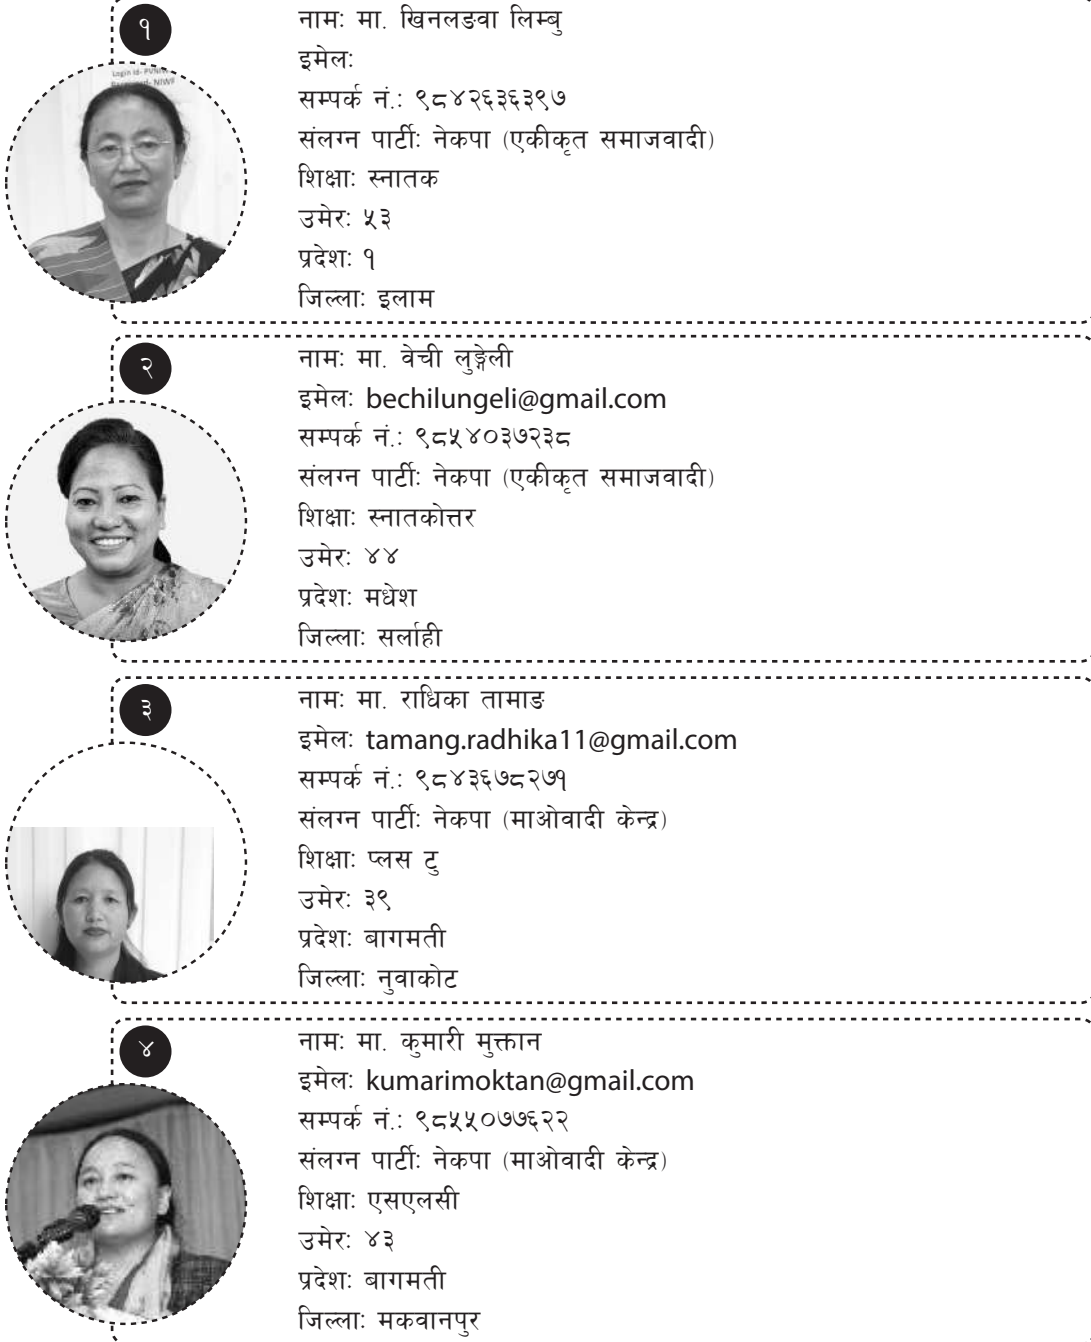 १
नामः मा. खिनलङवा लिम्बु
इमेलः
सम्पर्क नं.: ९८४२६३६३९७
संलग्न पार्टीः नेकपा (एकीकृत समाजवादी)
शिक्षाः स्नातक
उमेरः ५३
प्रदेशः १
जिल्लाः इलाम
२
नामः मा. वेची लुङ्गेली
इमेलः bechilungeli@gmail.com
सम्पर्क नं.: ९८५४०३७२३८
संलग्न पार्टीः नेकपा (एकीकृत समाजवादी)
शिक्षाः स्नातकोत्तर
उमेरः ४४
प्रदेशः मधेश
जिल्लाः सर्लाही
३
नामः मा. राधिका तामाङ
इमेलः tamang.radhika11@gmail.com
सम्पर्क नं.: ९८४३६७८२७१
संलग्न पार्टीः नेकपा (माओवादी केन्द्र)
शिक्षाः प्लस टु
उमेरः ३९
प्रदेशः बागमती
जिल्लाः नुवाकोट
४
नामः मा. कुमारी मुक्तान
इमेलः kumarimoktan@gmail.com
सम्पर्क नं.: ९८५५०७७६२२
संलग्न पार्टीः नेकपा (माओवादी केन्द्र)
शिक्षाः एसएलसी
उमेरः ४३
प्रदेशः बागमती
जिल्लाः मकवानपुर